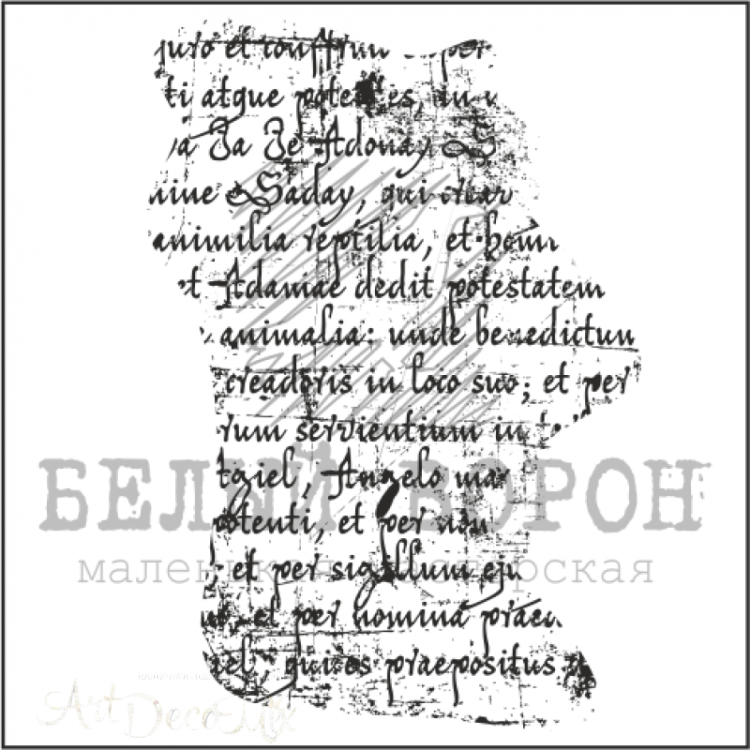 juro et confirm per
ti atque potentes, in
ia Ja Je Adonay S
mine Saday, qui crear
animilia reptilia, et homi
et Adamae dedit potestatem
animalia: unde benedictum
creadoris in loco suo; et per
rum servientium in
tgiel, Angelo ma
potenti, et per nom
; et per sigillum eju
et per nomina prae
iel, quires praepositus
БЕЛЫЙ ВОРОН
маленькая мастерская
ArtDecoMix